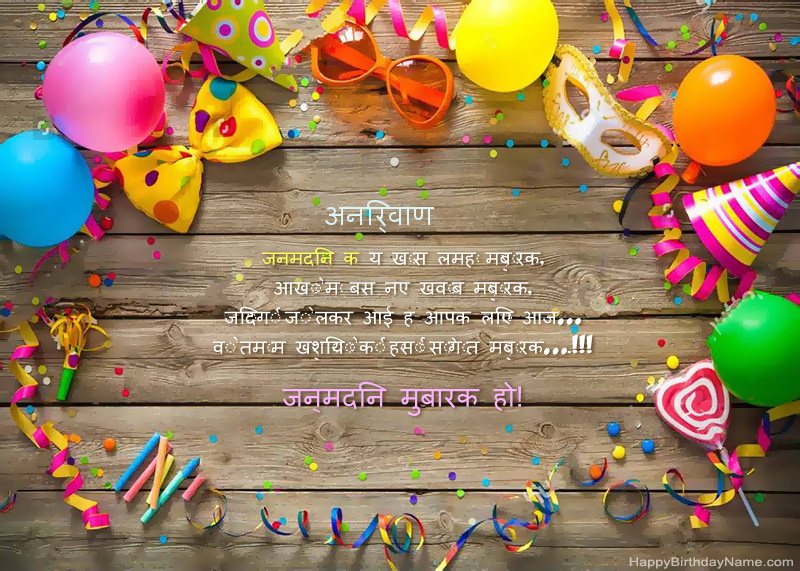 अनिर्वाण
जनमदनि क य ख◌स लमह◌ मब◌रक,
आख◌◌म◌ बस नए खव◌ब मब◌रक,
जदिग◌◌ज◌◌लकर आई ह आपक लएि आज...
व◌◌तम◌म खश्यि◌◌क◌◌हस◌◌स◌ग◌त मब◌रक....!!!
जन्मदिन मुबारक हो!
HappyBirthdayName.com